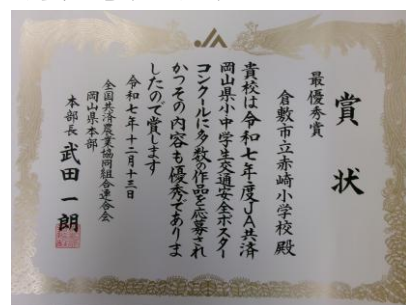 賞状
最優秀賞
倉敷市立赤崎小学校殿
貴校は令和七年度JA共済
岡山県小中学生交通安全ポスター
コンクールに多数の作品を応募され
かつその内容も優秀でありま
したので賞します
令和七年十二月十三日
全国共済農業協同組合連合会
岡山県本部
本部長 武田一朗